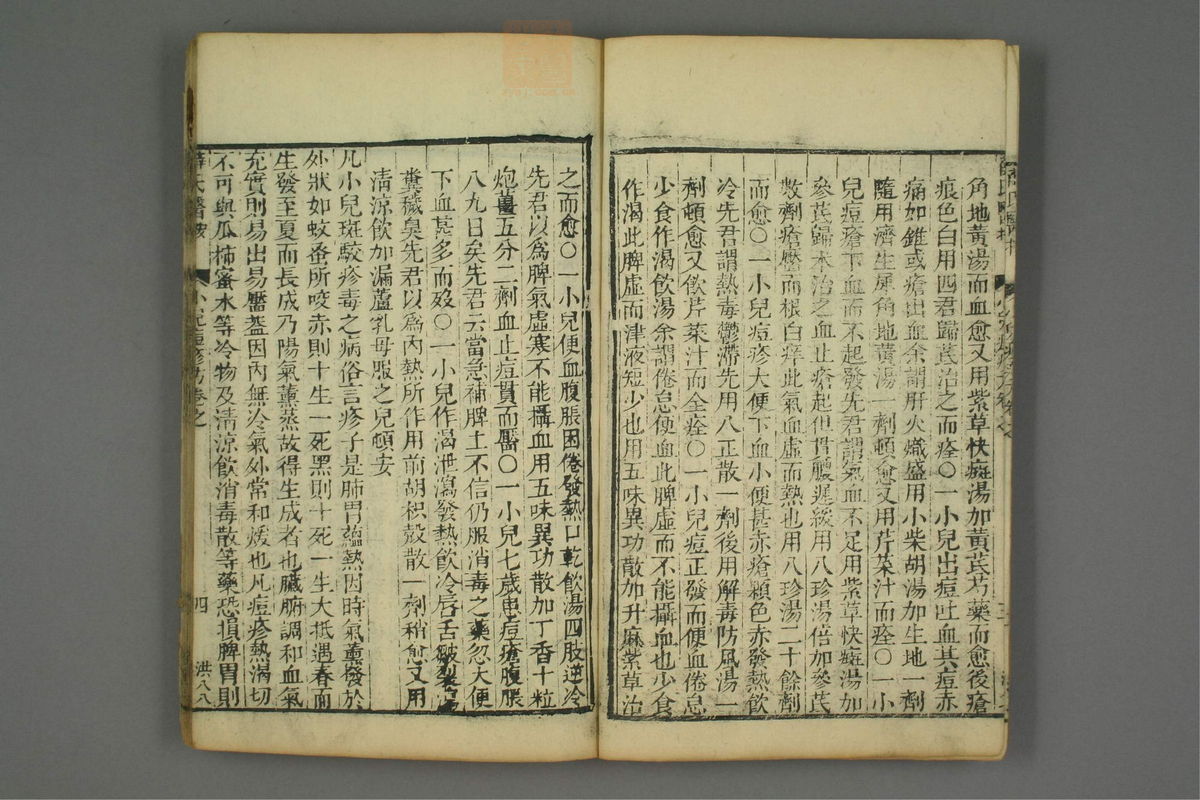 角地黃湯而血愈又用紫草快癍湯加黃芪芍藥而愈後瘡
痕色白用四君歸芪治之而痊○一小兒出痘吐血其痘赤
痛如錐或瘡出血余謂肝火熾盛用小柴胡湯加生地一劑
隨用濟生犀角地黃湯一劑頓愈又用芹菜汁而痊○一小
兒痘瘡下血而不起發先君謂氣血不足用紫草快癍湯加
參芪歸木治之血止瘡起但貫膿遲緩用八珍湯倍加參芪
數劑瘡靨而根白痒此氣血虛而熱也用八珍湯二十餘劑
而愈○一小兒痘疹大便下血小便甚赤瘡顆色赤發熱飲
冷先君謂熱毒鬱滯先用八正散一劑後用解毒防風湯一
劑頓愈又飲芹菜汁而全痊○一小兒痘正發而便血倦怠
少食作渴飲湯余謂倦怠便血此脾虛而不能攝血也少食
作渴此脾虛而津液短少也用五味異功散加升麻紫草治
之而愈○一小兒便血腹脹困倦發熱口乾飲湯四肢逆冷
先君以爲脾氣虛寒不能攝血用五味異功散加丁香十粒
炮薑五分二劑血止痘貫而靨○一小兒七歲患痘瘡腹脹
八九日矣先君云當急補脾土不信仍服消毒之藥忽大便
下血甚多而歿○一小兒作渴泄瀉發熱飲冷唇舌皸裂
糞穢臭先君以爲內熱所作用前胡枳殼散一劑稍愈又用
清凉飲加漏蘆乳母服之兒頓安
凡小兒斑駁疹毒之病俗言疹子是肺胃蘊熱因時氣薰發於
外狀如蚊蚤所咬赤則十生一死黑則十死一生大抵遇春而
生發至夏而長成乃陽氣薰蒸故得生成者也臟腑調和血氣
充實則易出易靨蓋因內無冷氣外常和煖也凡痘疹熱渴切
不可與瓜柿蜜水等冷物及清凉飲消毒散等藥恐損脾胃則
薛氏醫按 小兒痘疹方卷之 四 洪八八